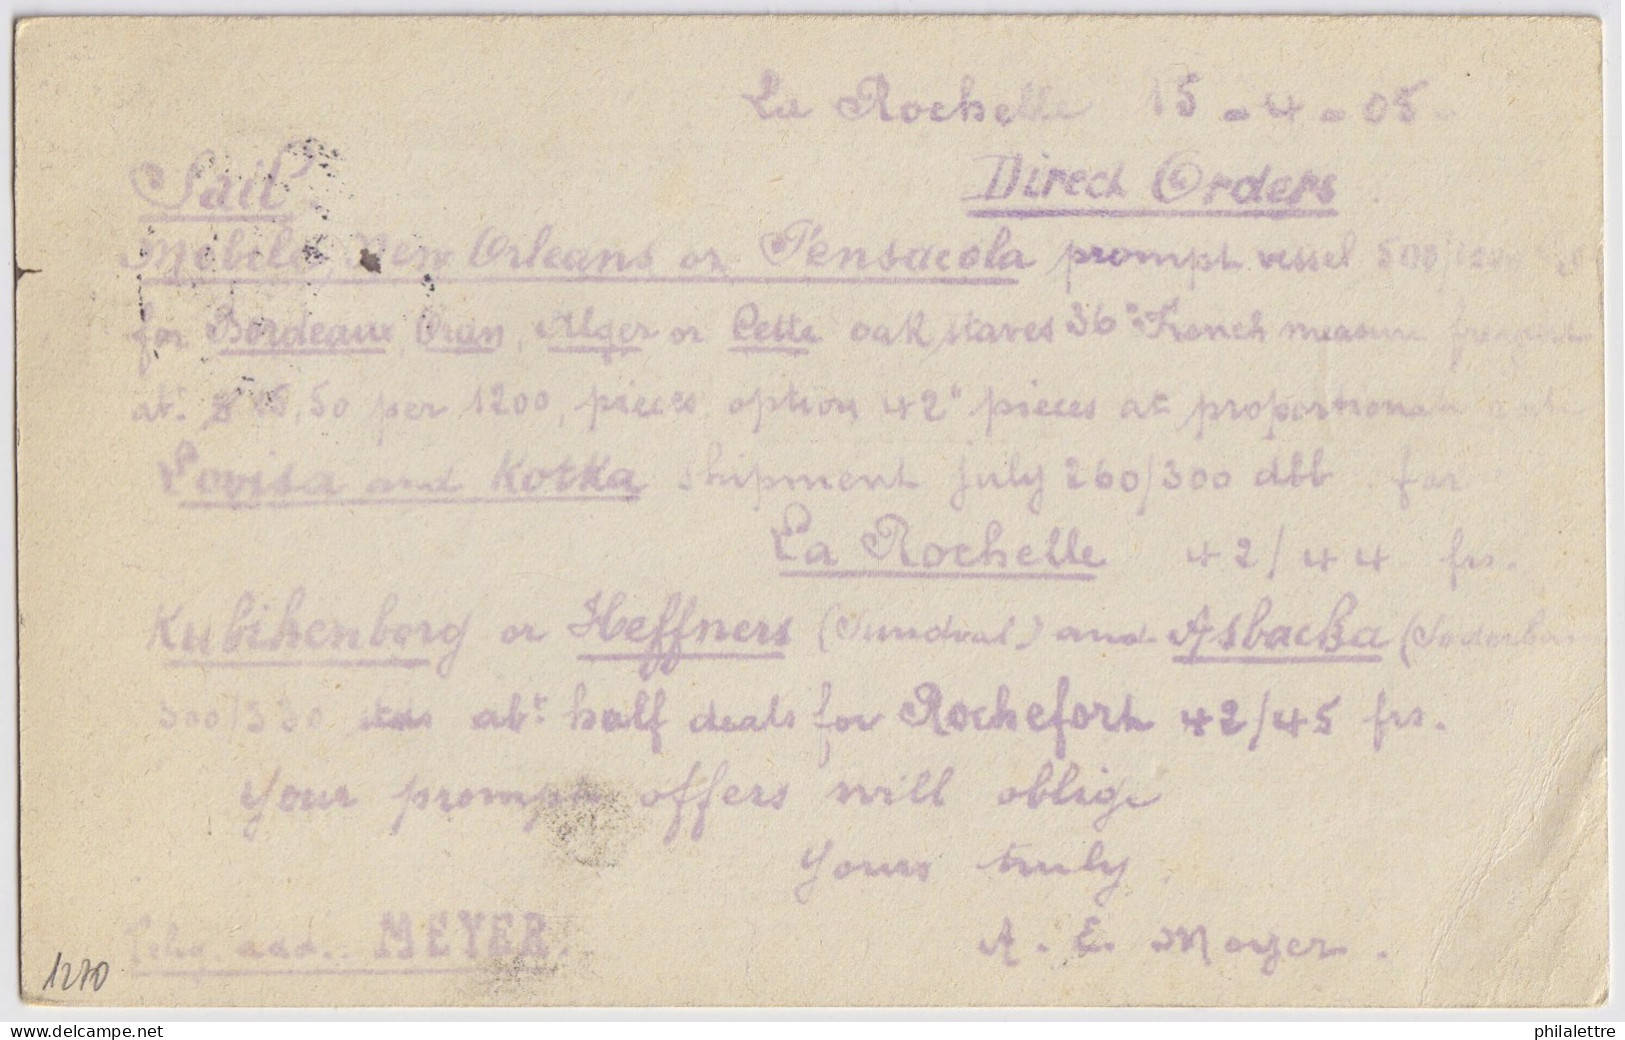 La Rochelle 15-4-05
Sail Direct Orders.
Mobile, New Orleans or Pensacola prompt vessel
for Bordeaux, Oran, Alger or Cette oak staves 36" French measure freight
at. 50 per 1200, pieces option 42" pieces at proportionate
Lovisa and Kotka shipment july 260/300 for
La Rochelle 42/44 frs.
Kubikenborg or Heffners (Sundval.) and Asbacka
300/330 stds abt half deals for Rochefort 42/45 frs.
Your prompt offers will oblige
Yours truly.
Teleg. add.: MEYER. A. E. Meyer.
1270
philalettre
www.delcampe.net